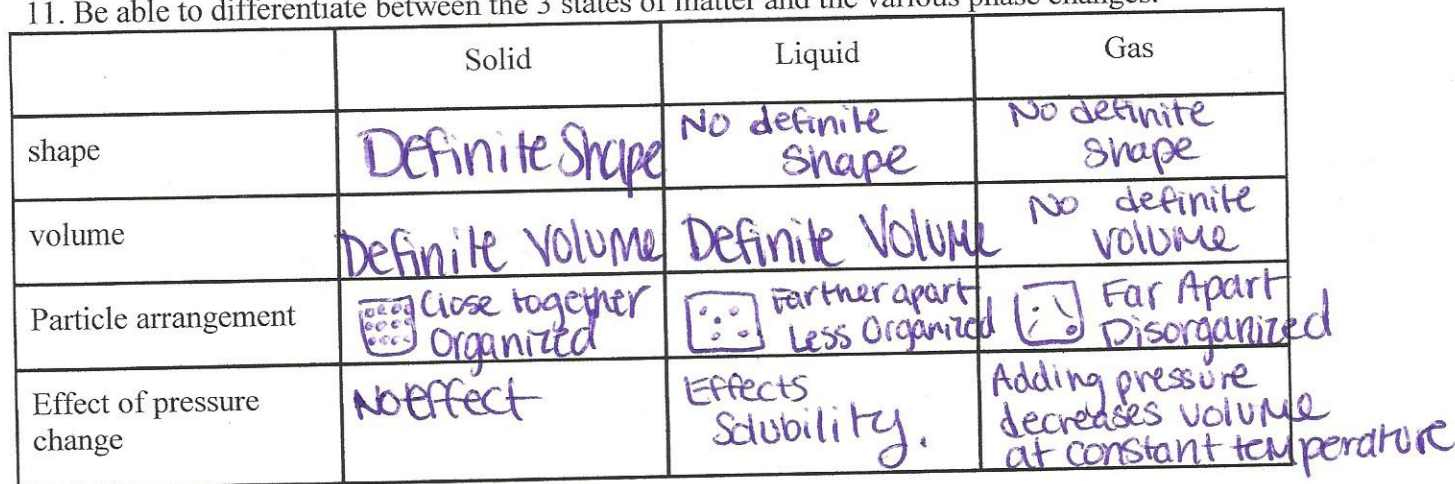 11. Be able to differentiate between the 3 states of matter and the various phase changes.
Solid Liquid Gas
shape
Definite Shape
No definite
Shape
No definite
Shape
volume
Definite Volume
Definite Volume
No definite
volume
Particle arrangement
Close together
Organized
Farther apart
Less Organized
Far Apart
Disorganized
Effect of pressure
change
No effect
Effects
Solubility.
Adding pressure
decreases volume
at constant temperature